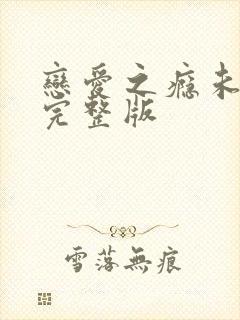 戀愛之癮未
完整版
雪落無痕